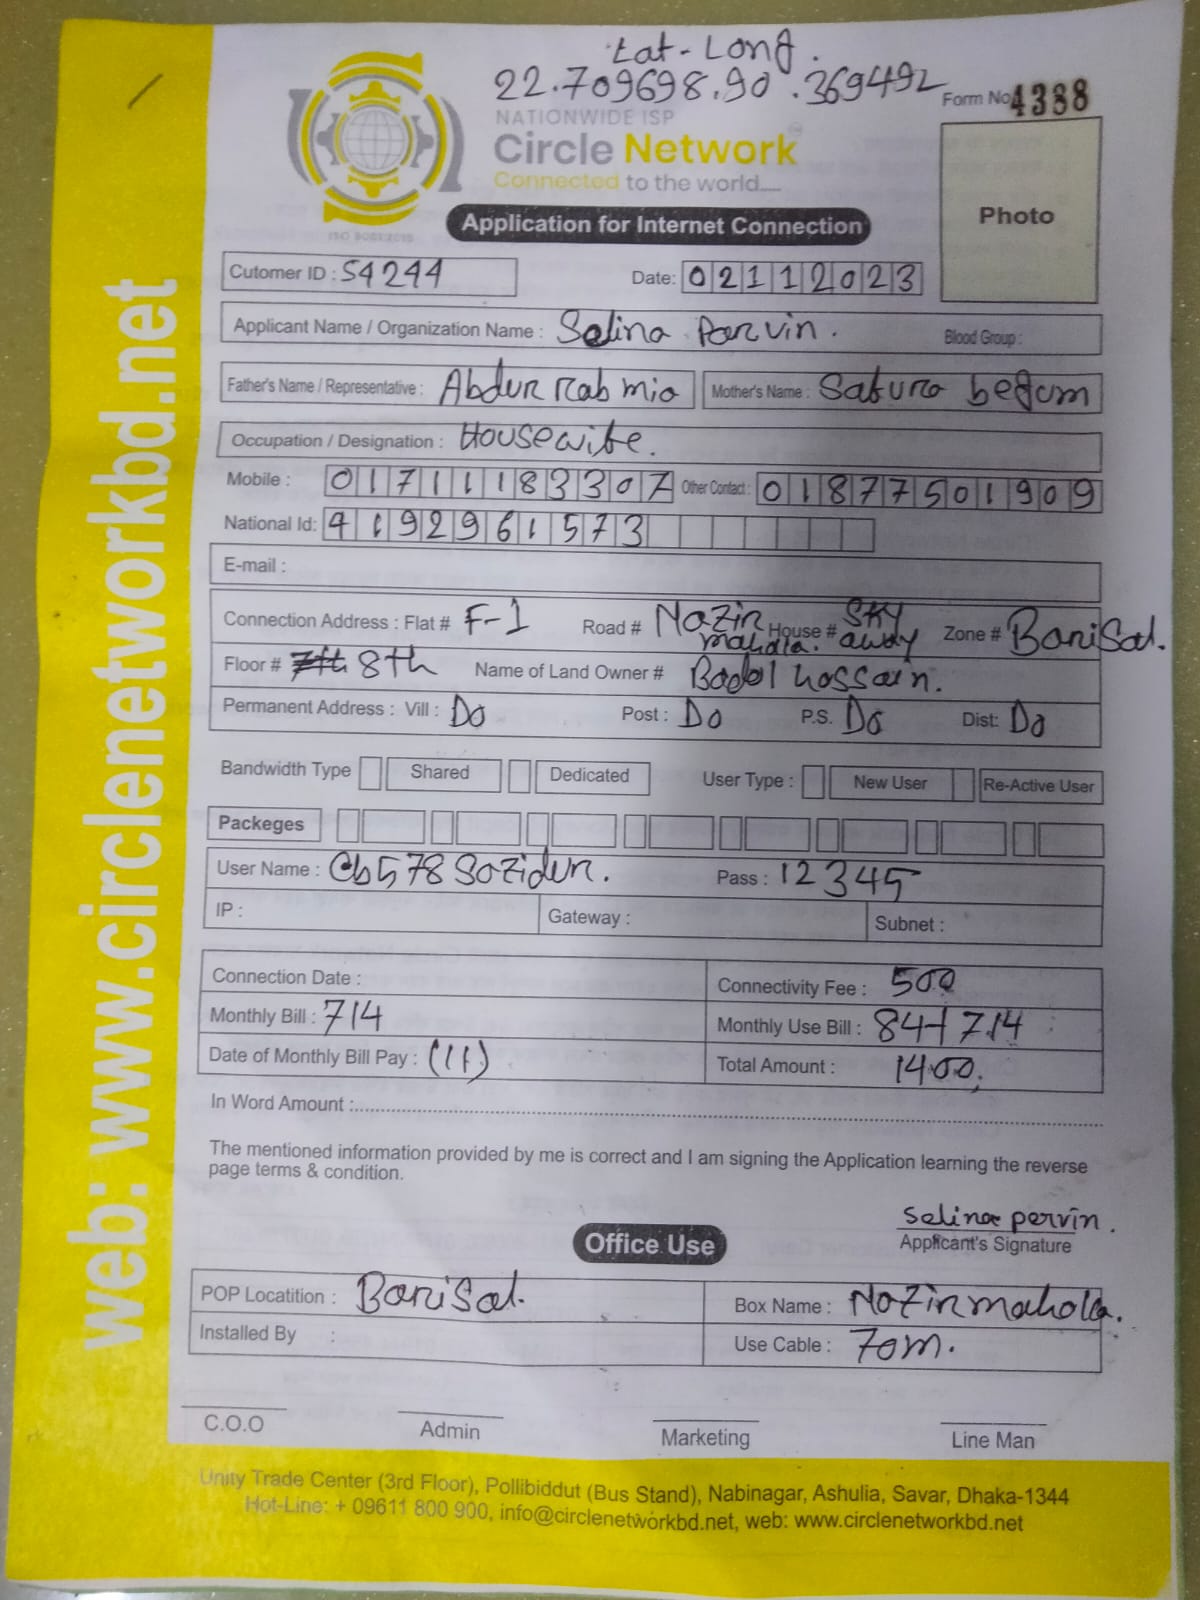 Lat-Long.
22.709698.90.369492
Form No 4388
NATIONWIDE ISP
Circle Network
Connected to the world.....
ISO 9001:2015
Application for Internet Connection
Photo
Cutomer ID : 54244
Date: 02112023
Applicant Name / Organization Name : Selina Parvin. Blood Group :
Father's Name / Representative : Abdur rab mia Mother's Name : Safura begum
Occupation / Designation : Housewife.
Mobile : 01711183307 Other Contact : 01877501909
National Id: 4192961573
E-mail :
Connection Address : Flat # F-1 Road # Nazir mahalla. House # Sky away Zone # Barisal.
Floor # 7th 8th Name of Land Owner # Badol hossain.
Permanent Address : Vill : Do Post : Do P.S. Do Dist: Do
Bandwidth Type Shared Dedicated User Type : New User Re-Active User
Packeges
User Name : Cb578 Sozidur. Pass : 12345
IP : Gateway : Subnet :
Connection Date : Connectivity Fee : 500
Monthly Bill : 714 Monthly Use Bill : 84+714
Date of Monthly Bill Pay : (11) Total Amount : 1400.
In Word Amount :
The mentioned information provided by me is correct and I am signing the Application learning the reverse
page terms & condition.
Selina pervin.
Applicant's Signature
Office Use
POP Locatition : Barisal. Box Name : Nazirmahola.
Installed By : Use Cable : 70m.
C.O.O Admin Marketing Line Man
Unity Trade Center (3rd Floor), Pollibiddut (Bus Stand), Nabinagar, Ashulia, Savar, Dhaka-1344
Hot-Line: + 09611 800 900, info@circlenetworkbd.net, web: www.circlenetworkbd.net
web: www.circlenetworkbd.net